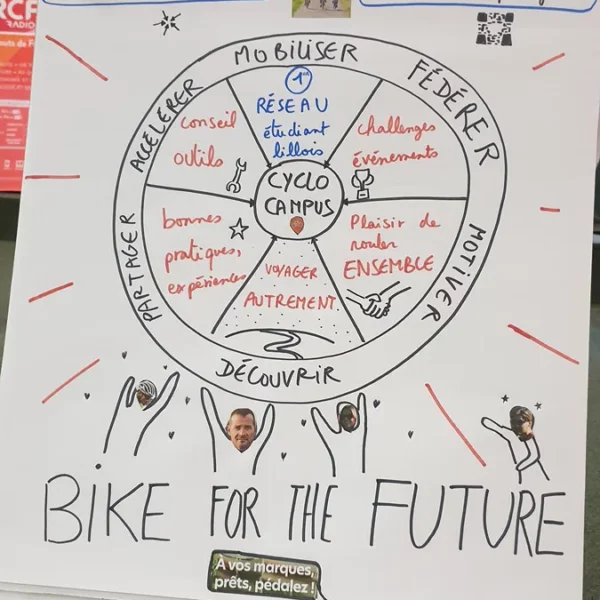 RCF
RADIO
MOBILISER
FÉDÉRER
MOTIVER
DÉCOUVRIR
PARTAGER
ACCÉLERER
1er
RÉSEAU
étudiant
lillois
challenges
événements
Plaisir de
rouler
ENSEMBLE
VOYAGER
AUTREMENT
bonnes
pratiques,
expériences
conseil
outils
CYCLO
CAMPUS
BIKE FOR THE FUTURE
À vos marques,
prêts, pédalez !